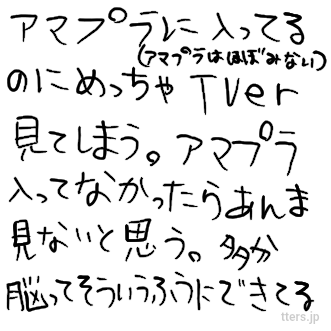 アマプラに入ってる
(アマプラはほぼみない)
のにめっちゃTVer
見てしまう。アマプラ
入ってなかったらあんま
見ないと思う。多分
脳ってそういうふうにできてる
tters.jp